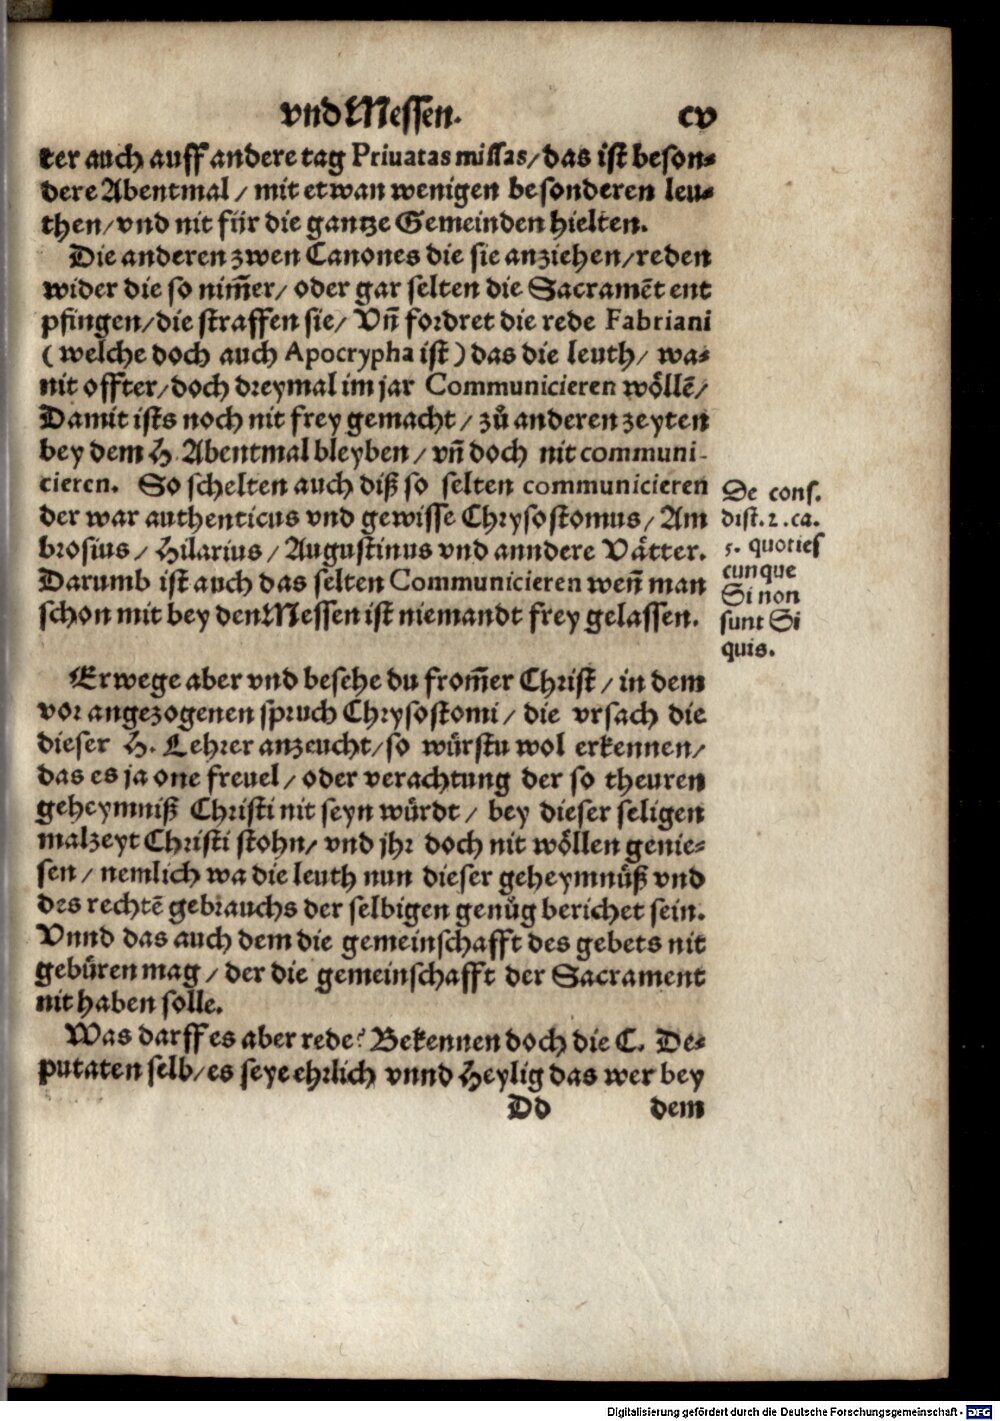 vnd Messen. cv
ter auch auff andere tag Priuatas missas/ das ist beson-
dere Abentmal / mit etwan wenigen besonderen leu-
then/ vnd nit für die gantze Gemeinden hielten.
Die anderen zwen Canones die sie anziehen/ reden
wider die so nim̃er/ oder gar selten die Sacramẽt ent
pfingen/ die straffen sie/ Vñ fordret die rede Fabriani
( welche doch auch Apocrypha ist ) das die leuth/ wa-
nit offter/ doch dreymal im jar Communicieren wöllẽ/
Damit ists noch nit frey gemacht / zů anderen zeyten
bey dem H. Abentmal bleyben / vñ doch nit communi-
cieren. So schelten auch diß so selten communicieren
der war authenticus vnd gewisse Chrysostomus/ Am
brosius / Hilarius / Augustinus vnd anndere Vätter.
Darumb ist auch das selten Communicieren weñ man
schon mit bey den Messen ist niemandt frey gelassen.
De cons.
dist. 2. ca.
5. quoties
cunque
Si non
sunt Si
quis.
Erwege aber vnd besehe du from̃er Christ / in dem
vor angezogenen spruch Chrysostomi / die vrsach die
dieser H. Lehrer anzeucht/ so würstu wol erkennen/
das es ja one freuel / oder verachtung der so theuren
geheymniß Christi nit seyn würdt / bey dieser seligen
malzeyt Christi stohn/ vnd jhr doch nit wöllen genie-
sen / nemlich wa die leuth nun dieser geheymnüß vnd
des rechtẽ gebrauchs der selbigen genůg berichet sein.
Vnnd das auch dem die gemeinschafft des gebets nit
gebüren mag / der die gemeinschafft der Sacrament
nit haben solle.
Was darff es aber rede? Bekennen doch die C. De-
putaten selb/ es seye ehrlich vnnd Heylig das wer bey
Dd dem
Digitalisierung gefördert durch die Deutsche Forschungsgemeinschaft - DFG